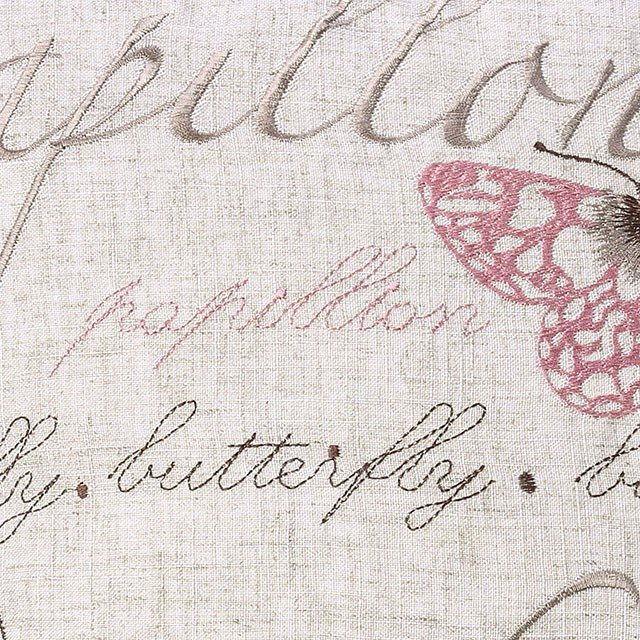 apillon
papillon
ly. butterfly. b